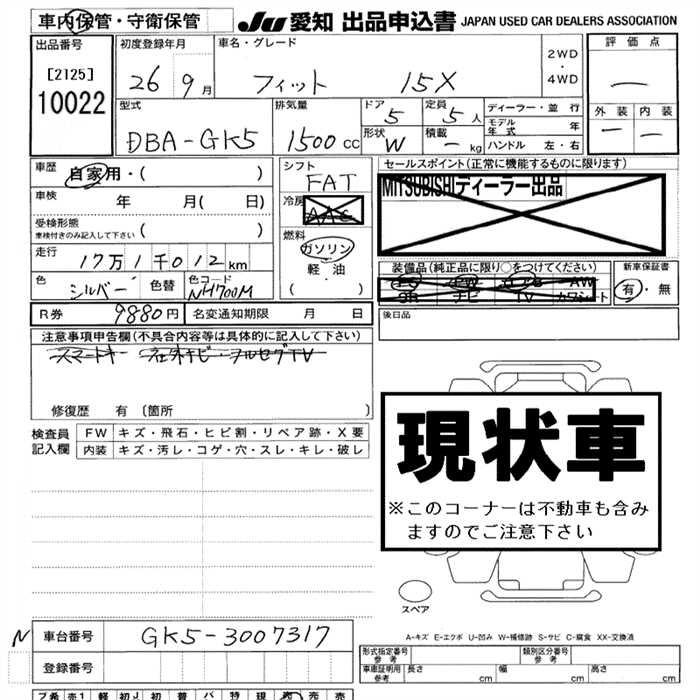 車内保管・守衛保管 JU 愛知 出品申込書 JAPAN USED CAR DEALERS ASSOCIATION
出品番号 初度登録年月 車名・グレード 2WD・4WD 評価点
[2125] 26 9月 フィット 15X —
10022 外装 内装
型式 排気量 ドア 定員 ディーラー・並行 — —
DBA-GK5 1500cc 5 5人 モデル年式 年
形状 積載 ハンドル 左・右
W —kg
車歴 自家用・( ) シフト セールスポイント(正常に機能するものに限ります)
FAT MITSUBISHIディーラー出品
車検 年 月( 日) 冷房
AAC
受検形態 ( )
車検付きのみ記入して下さい 燃料
ガソリン
走行 17万1千012km 軽油 装備品(純正品に限り○をつけてください) 新車保証書
( ・ ) PS PW エアB AW 有・無
色 シルバー 色替 色コード NH700M SR ナビ TV カワシート
R券 9880円 名変通知期限 月 日 後日品
注意事項申告欄(不具合内容等は具体的に記入して下さい)
スマートキー 社外ナビ・フルセグTV
修復歴 有 〔箇所 〕
検査員 FW キズ・飛石・ヒビ割・リペア跡・X要
記入欄 内装 キズ・汚レ・コゲ・穴・スレ・キレ・破レ
現状車
※このコーナーは不動車も含み
ますのでご注意下さい
スペア
A-キズ E-エクボ U-凹み W-補修跡 S-サビ C-腐食 XX-交換済
N 車台番号 GK5-3007317
登録番号
形式指定番号 参考 類別区分番号 参考
車庫証明用 参考 長さ cm 幅 cm 高さ cm